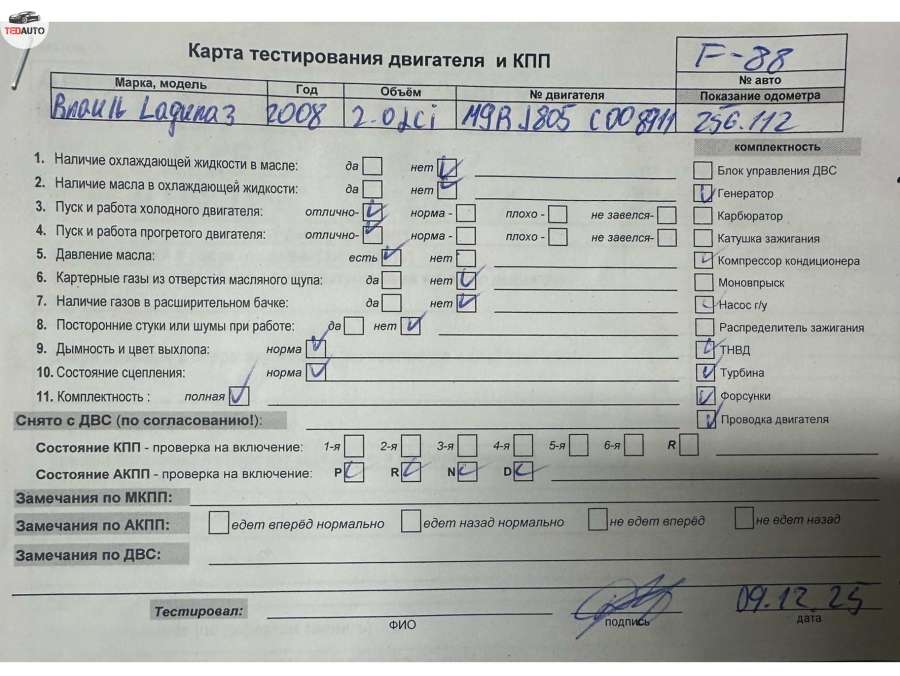 TEDAUTO
Карта тестирования двигателя и КПП
F-88
№ авто
Марка, модель Год Объём № двигателя Показание одометра
Laguna 3 2008 2.0 dci M9R J805 C008911 256.112
комплектность
1. Наличие охлаждающей жидкости в масле: да нет
Блок управления ДВС
2. Наличие масла в охлаждающей жидкости: да нет
Генератор
3. Пуск и работа холодного двигателя: отлично- норма - плохо - не завелся-
Карбюратор
4. Пуск и работа прогретого двигателя: отлично- норма - плохо - не завелся-
Катушка зажигания
5. Давление масла: есть нет
Компрессор кондиционера
6. Картерные газы из отверстия масляного щупа: да нет
Моновпрыск
7. Наличие газов в расширительном бачке: да нет
Насос г/у
8. Посторонние стуки или шумы при работе: да нет
Распределитель зажигания
9. Дымность и цвет выхлопа: норма
ТНВД
10. Состояние сцепления: норма
Турбина
11. Комплектность : полная
Форсунки
Снято с ДВС (по согласованию!):
Проводка двигателя
Состояние КПП - проверка на включение: 1-я 2-я 3-я 4-я 5-я 6-я R
Состояние АКПП - проверка на включение: P R N D
Замечания по МКПП:
Замечания по АКПП: едет вперёд нормально едет назад нормально не едет вперёд не едет назад
Замечания по ДВС:
Тестировал:
09.12.25
ФИО подпись дата